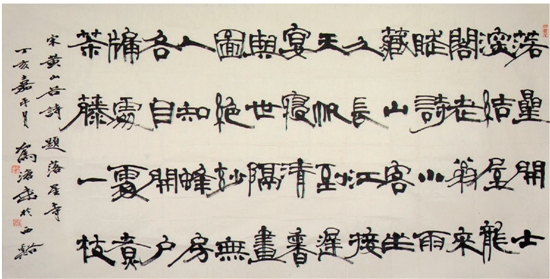 落星開士
深結屋龍
閣老翁來
賦詩小雨
藏山客坐
久長江接
天帆到遲
宴寢清香
與世隔畫
圖絕妙無
人知蜂房
各自開戶
牖處處煮
茶藤一枝
宋黃山谷詩 題落星寺
丁亥嘉平月 於西谿